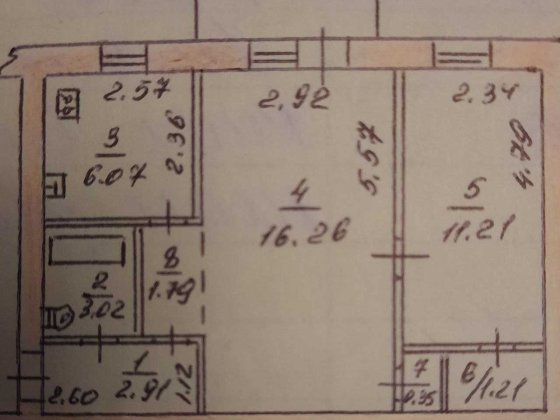 2.57
2.92
2.34
2.36
5.57
4.79
3
6.07
4
16.26
5
11.21
8
1.79
2
3.02
1
2.91
2.60
1.12
7
0.35
6/1.21